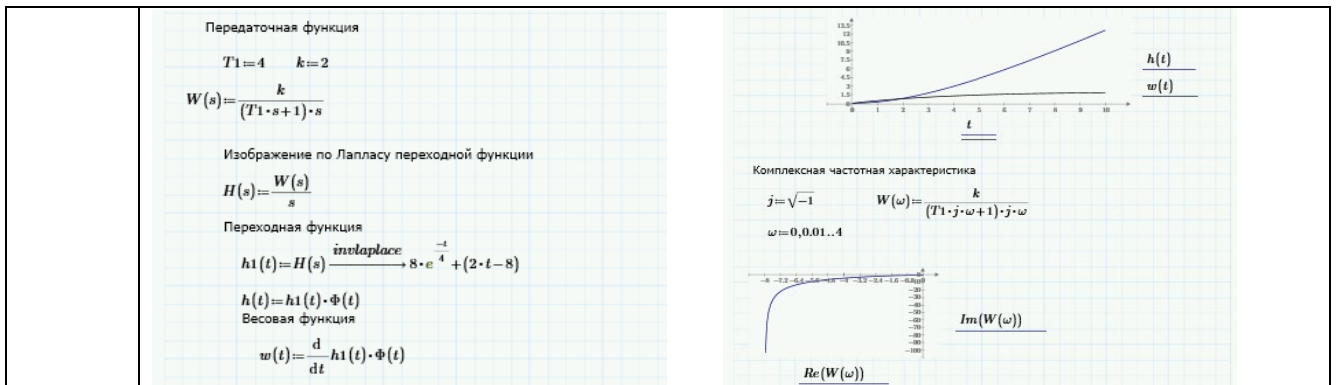 Передаточная функция
T1:=4 k:=2
W(s):=k/((T1·s+1)·s)
Изображение по Лапласу переходной функции
H(s):=W(s)/s
Переходная функция
h1(t):=H(s) invlaplace → 8·e^(-t/4)+(2·t-8)
h(t):=h1(t)·Φ(t)
Весовая функция
w(t):=d/dt h1(t)·Φ(t)
13.5
12
10.5
9
7.5
6
4.5
3
1.5
0
0 1 2 3 4 5 6 7 8 9 10
t
h(t)
w(t)
Комплексная частотная характеристика
j:=√-1 W(ω):=k/((T1·j·ω+1)·j·ω)
ω:=0,0.01..4
-8 -7.2 -6.4 -5.6 -4.8 -4 -3.2 -2.4 -1.6 -0.8 0
-10
-20
-30
-40
-50
-60
-70
-80
-90
-100
Im(W(ω))
Re(W(ω))